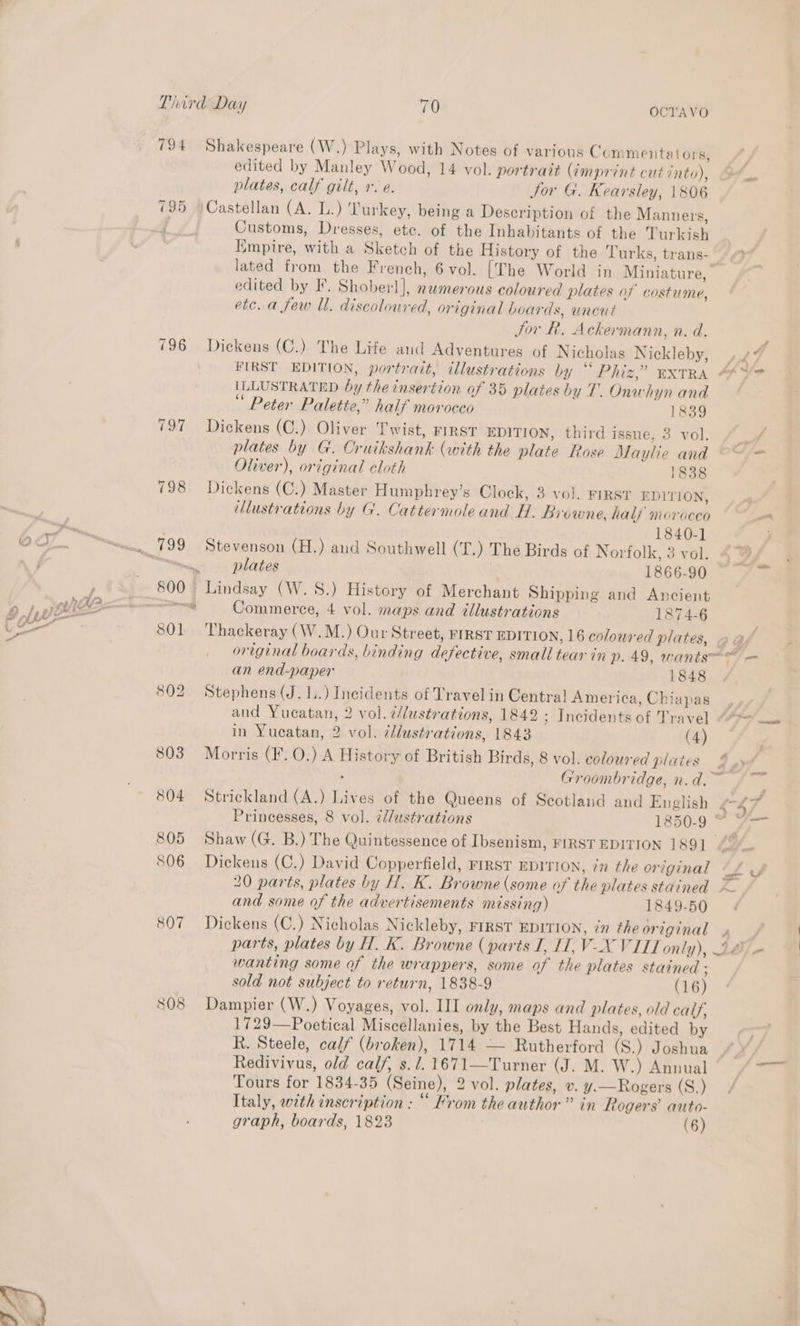 Third Day 70 OCTAVO
794 Shakespeare (W.) Plays, with Notes of various Commentators,
edited by Manley Wood, 14 vol. portrait (imprint cut into),
plates, calf gilt, r. e. for G. Kearsley, 1806
795 Castellan (A. L.) Turkey, being a Description of the Manners,
Customs, Dresses, etc. of the Inhabitants of the Turkish
Empire, with a Sketch of the History of the Turks, trans-
lated from the French, 6 vol. [The World in Miniature,
edited by F. Shoberl], numerous coloured plates of costume,
etc. a few ll. discoloured, original boards, uncut
for R. Ackermann, n. d.
796 Dickens (C.) The Life and Adventures of Nicholas Nickleby,
FIRST EDITION, portrait, illustrations by “Phiz,” EXTRA
ILLUSTRATED by the insertion of 35 plates by T. Onwhyn and
“Peter Palette,” half morocco 1839
797 Dickens (C.) Oliver Twist, FIRST EDITION, third issue, 3 vol.
plates by G. Cruikshank (with the plate Rose Maylie and
Oliver), original cloth 1838
798 Dickens (C.) Master Humphrey's Clock, 3 vol. FIRST EDITION,
illustrations by G. Cattermole and H. Browne, half morocco
1840-1
799 Stevenson (H.) and Southwell (T.) The Birds of Norfolk, 3 vol.
plates 1866-90
800 Lindsay (W. S.) History of Merchant Shipping and Ancient
Commerce, 4 vol. maps and illustrations 1874-6
801 Thackeray (W.M.) Our Street, FIRST EDITION, 16 coloured plates,
original boards, binding defective, small tear in p. 49, wants
an end-paper 1848
802 Stephens (J. L.) Incidents of Travel in Central America, Chiapas
and Yucatan, 2 vol. illustrations, 1842; Incidents of Travel
in Yucatan, 2 vol. illustrations, 1843 (4)
803 Morris (F. O.) A History of British Birds, 8 vol. coloured plates
Groombridge, n. d.
804 Strickland (A.) Lives of the Queens of Scotland and English
Princesses, 8 vol. illustrations 1850-9
805 Shaw (G. B.) The Quintessence of Ibsenism, FIRST EDITION 1891
806 Dickens (C.) David Copperfield, FIRST EDITION, in the original
20 parts, plates by H. K. Browne (some of the plates stained
and some of the advertisements missing) 1849-50
807 Dickens (C.) Nicholas Nickleby, FIRST EDITION, in the original
parts, plates by H. K. Browne (parts I, II, V-XVIII only),
wanting some of the wrappers, some of the plates stained;
sold not subject to return, 1838-9 (16)
808 Dampier (W.) Voyages, vol. III only, maps and plates, old calf,
1729—Poetical Miscellanies, by the Best Hands, edited by
R. Steele, calf (broken), 1714 — Rutherford (S.) Joshua
Redivivus, old calf, s. l. 1671—Turner (J. M. W.) Annual
Tours for 1834-35 (Seine), 2 vol. plates, v. y.—Rogers (S.)
Italy, with inscription: “From the author” in Rogers' auto-
graph, boards, 1823 (6)